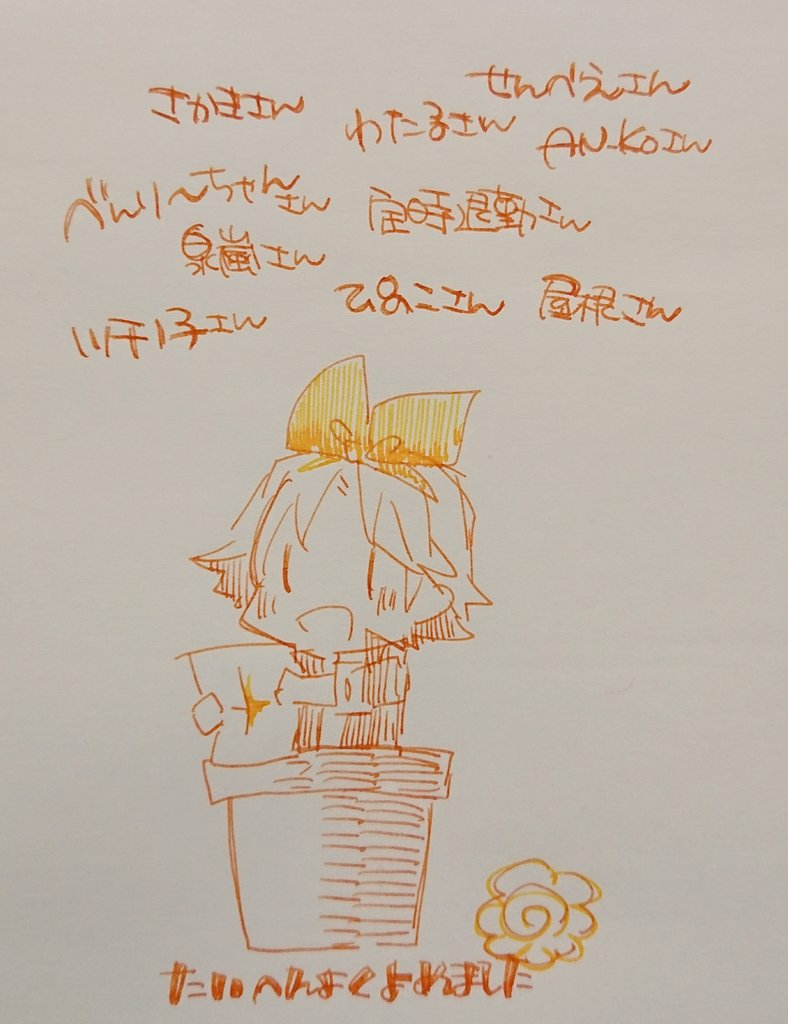 せんべえさん
さかきさん
わたるさん
AN-KOさん
べんり~ちゃんさん
定時退勤さん
泉嵐さん
ぴあこさん
屋根さん
ツチノ子さん
たいへんよくよめました